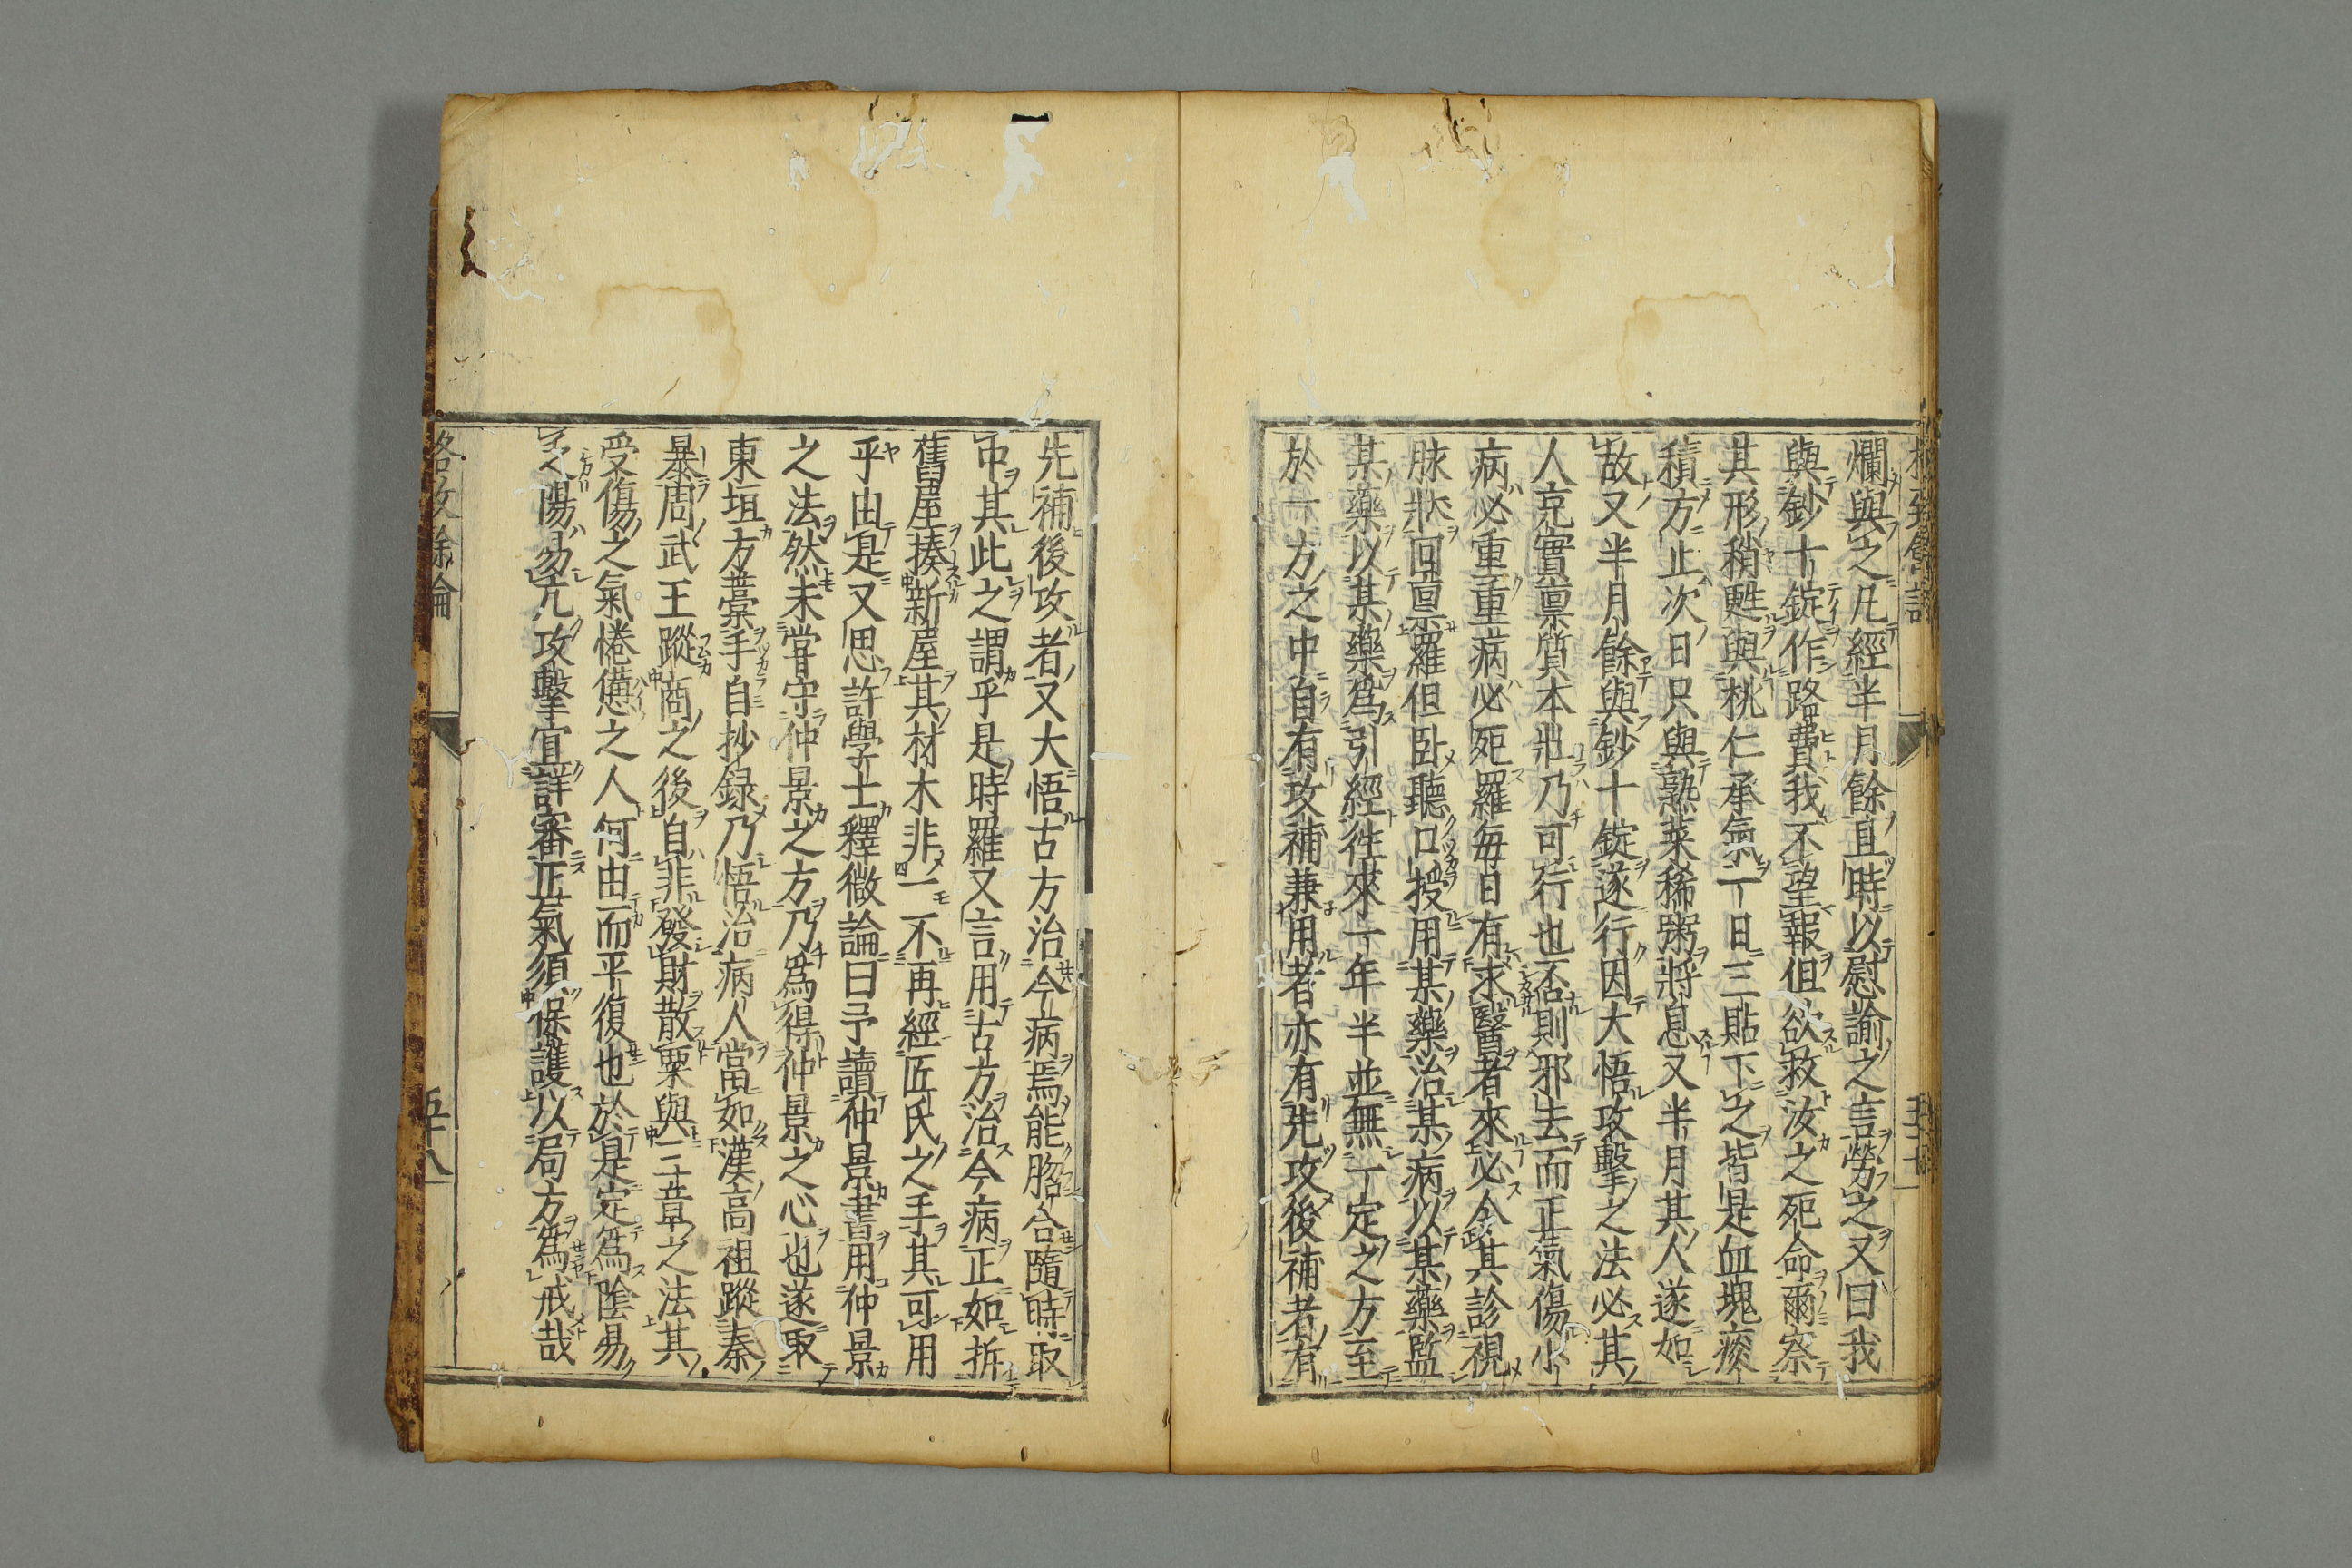 爛與之凡經半月餘且時以慰諭之言勞之又曰我
與鈔十錠作路費我不望報但欲救汝之死命爾察
其形稍甦與桃仁承氣一日三貼下之皆是血塊痰
積方止次日只與熟菜稀粥將息又半月其人遂如
故又半月餘與鈔十錠遂行因大悟攻擊之法必其
人充實稟質本壯乃可行也否則邪去而正氣傷小
病必重重病必死羅每日有求醫者來必令其診視
脉狀回稟羅但臥聽口授用某藥治某病以某藥監
某藥以某藥爲引經徃來一年半並無一定之方至
於一方之中自有攻補兼用者亦有先攻後補者有
先補後攻者又大悟古方治今病焉能脗合隨時取
中其此之謂乎是時羅又言用古方治今病正如拆
舊屋揍新屋其材木非一不再經匠氏之手其可用
乎由是又思許學士釋微論曰予讀仲景書用仲景
之法然未甞守仲景之方乃爲得仲景之心也遂取
東垣方藁手自抄録乃悟治病人當如漢高祖蹤秦
暴周武王蹤商之後自非發財散粟與三章之法其
受傷之氣倦憊之人何由而平復也於是定爲陰易
乏陽易亢攻擊宜詳審正氣須保護以局方爲戒哉
格致餘論
五十八